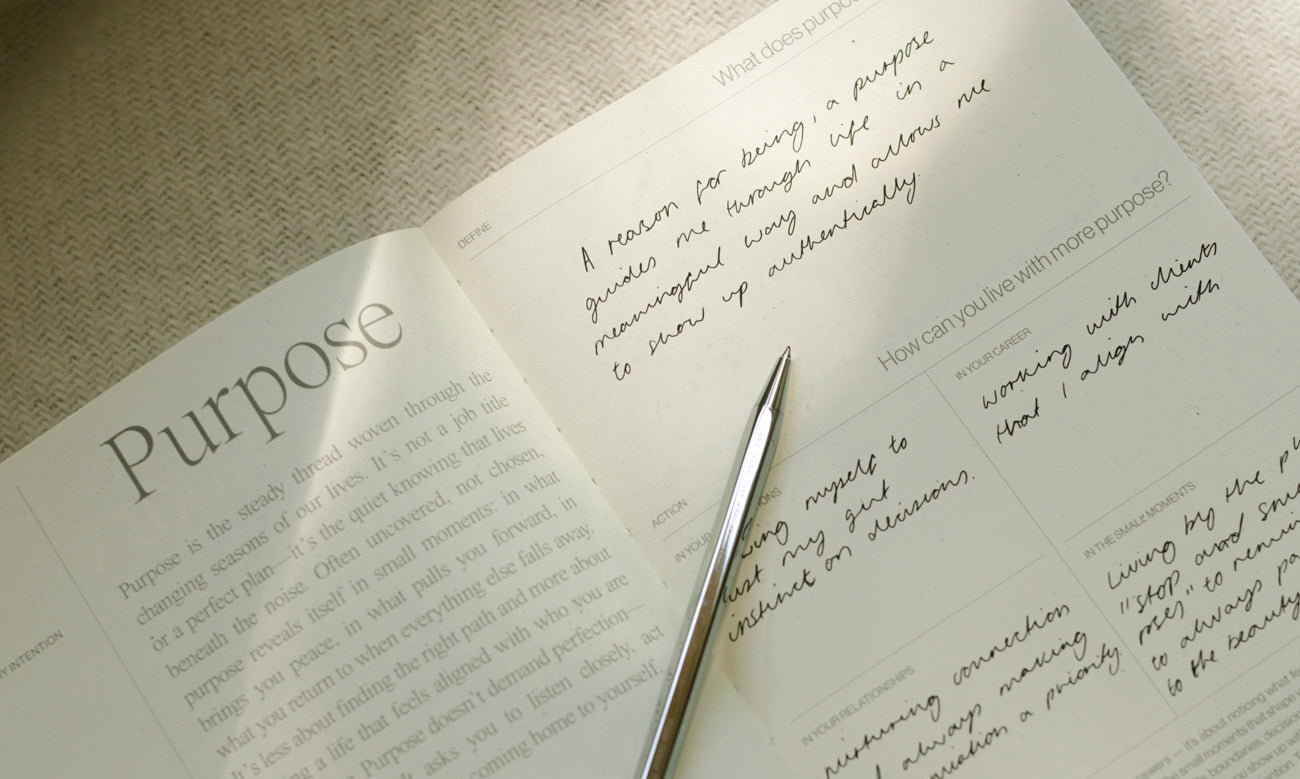 Purpose
Purpose is the steady thread woven through the
changing seasons of our lives. It's not a job title
or a perfect plan—it's the quiet knowing that lives
beneath the noise. Often uncovered, not chosen,
purpose reveals itself in small moments: in what
brings you peace, in what pulls you forward, in
what you return to when everything else falls away.
It's less about finding the right path and more about
a life that feels aligned with who you are
Purpose doesn't demand perfection—
asks you to listen closely, act
coming home to yourself.
INTENTION
What does
DEFINE
A reason for being, a purpose
guides me through life in a
meaningful way and allows me
to show up authentically
How can you live with more purpose?
ACTION
IN YOUR
myself to
my gut
instinct on decisions.
IN YOUR CAREER
working with clients
that I align with
IN YOUR RELATIONSHIPS
nurturing connection
always making
a priority
IN THE SMALL MOMENTS
Living by the
"stop and
roses" to
to always
to the beauty
it's about noticing what
small moments that shape
boundaries,
show up